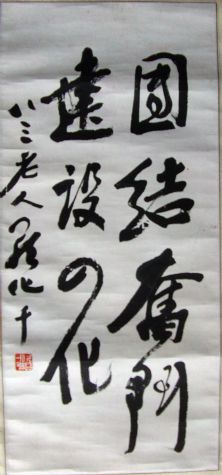 團結奮鬥
建設四化
八三老人